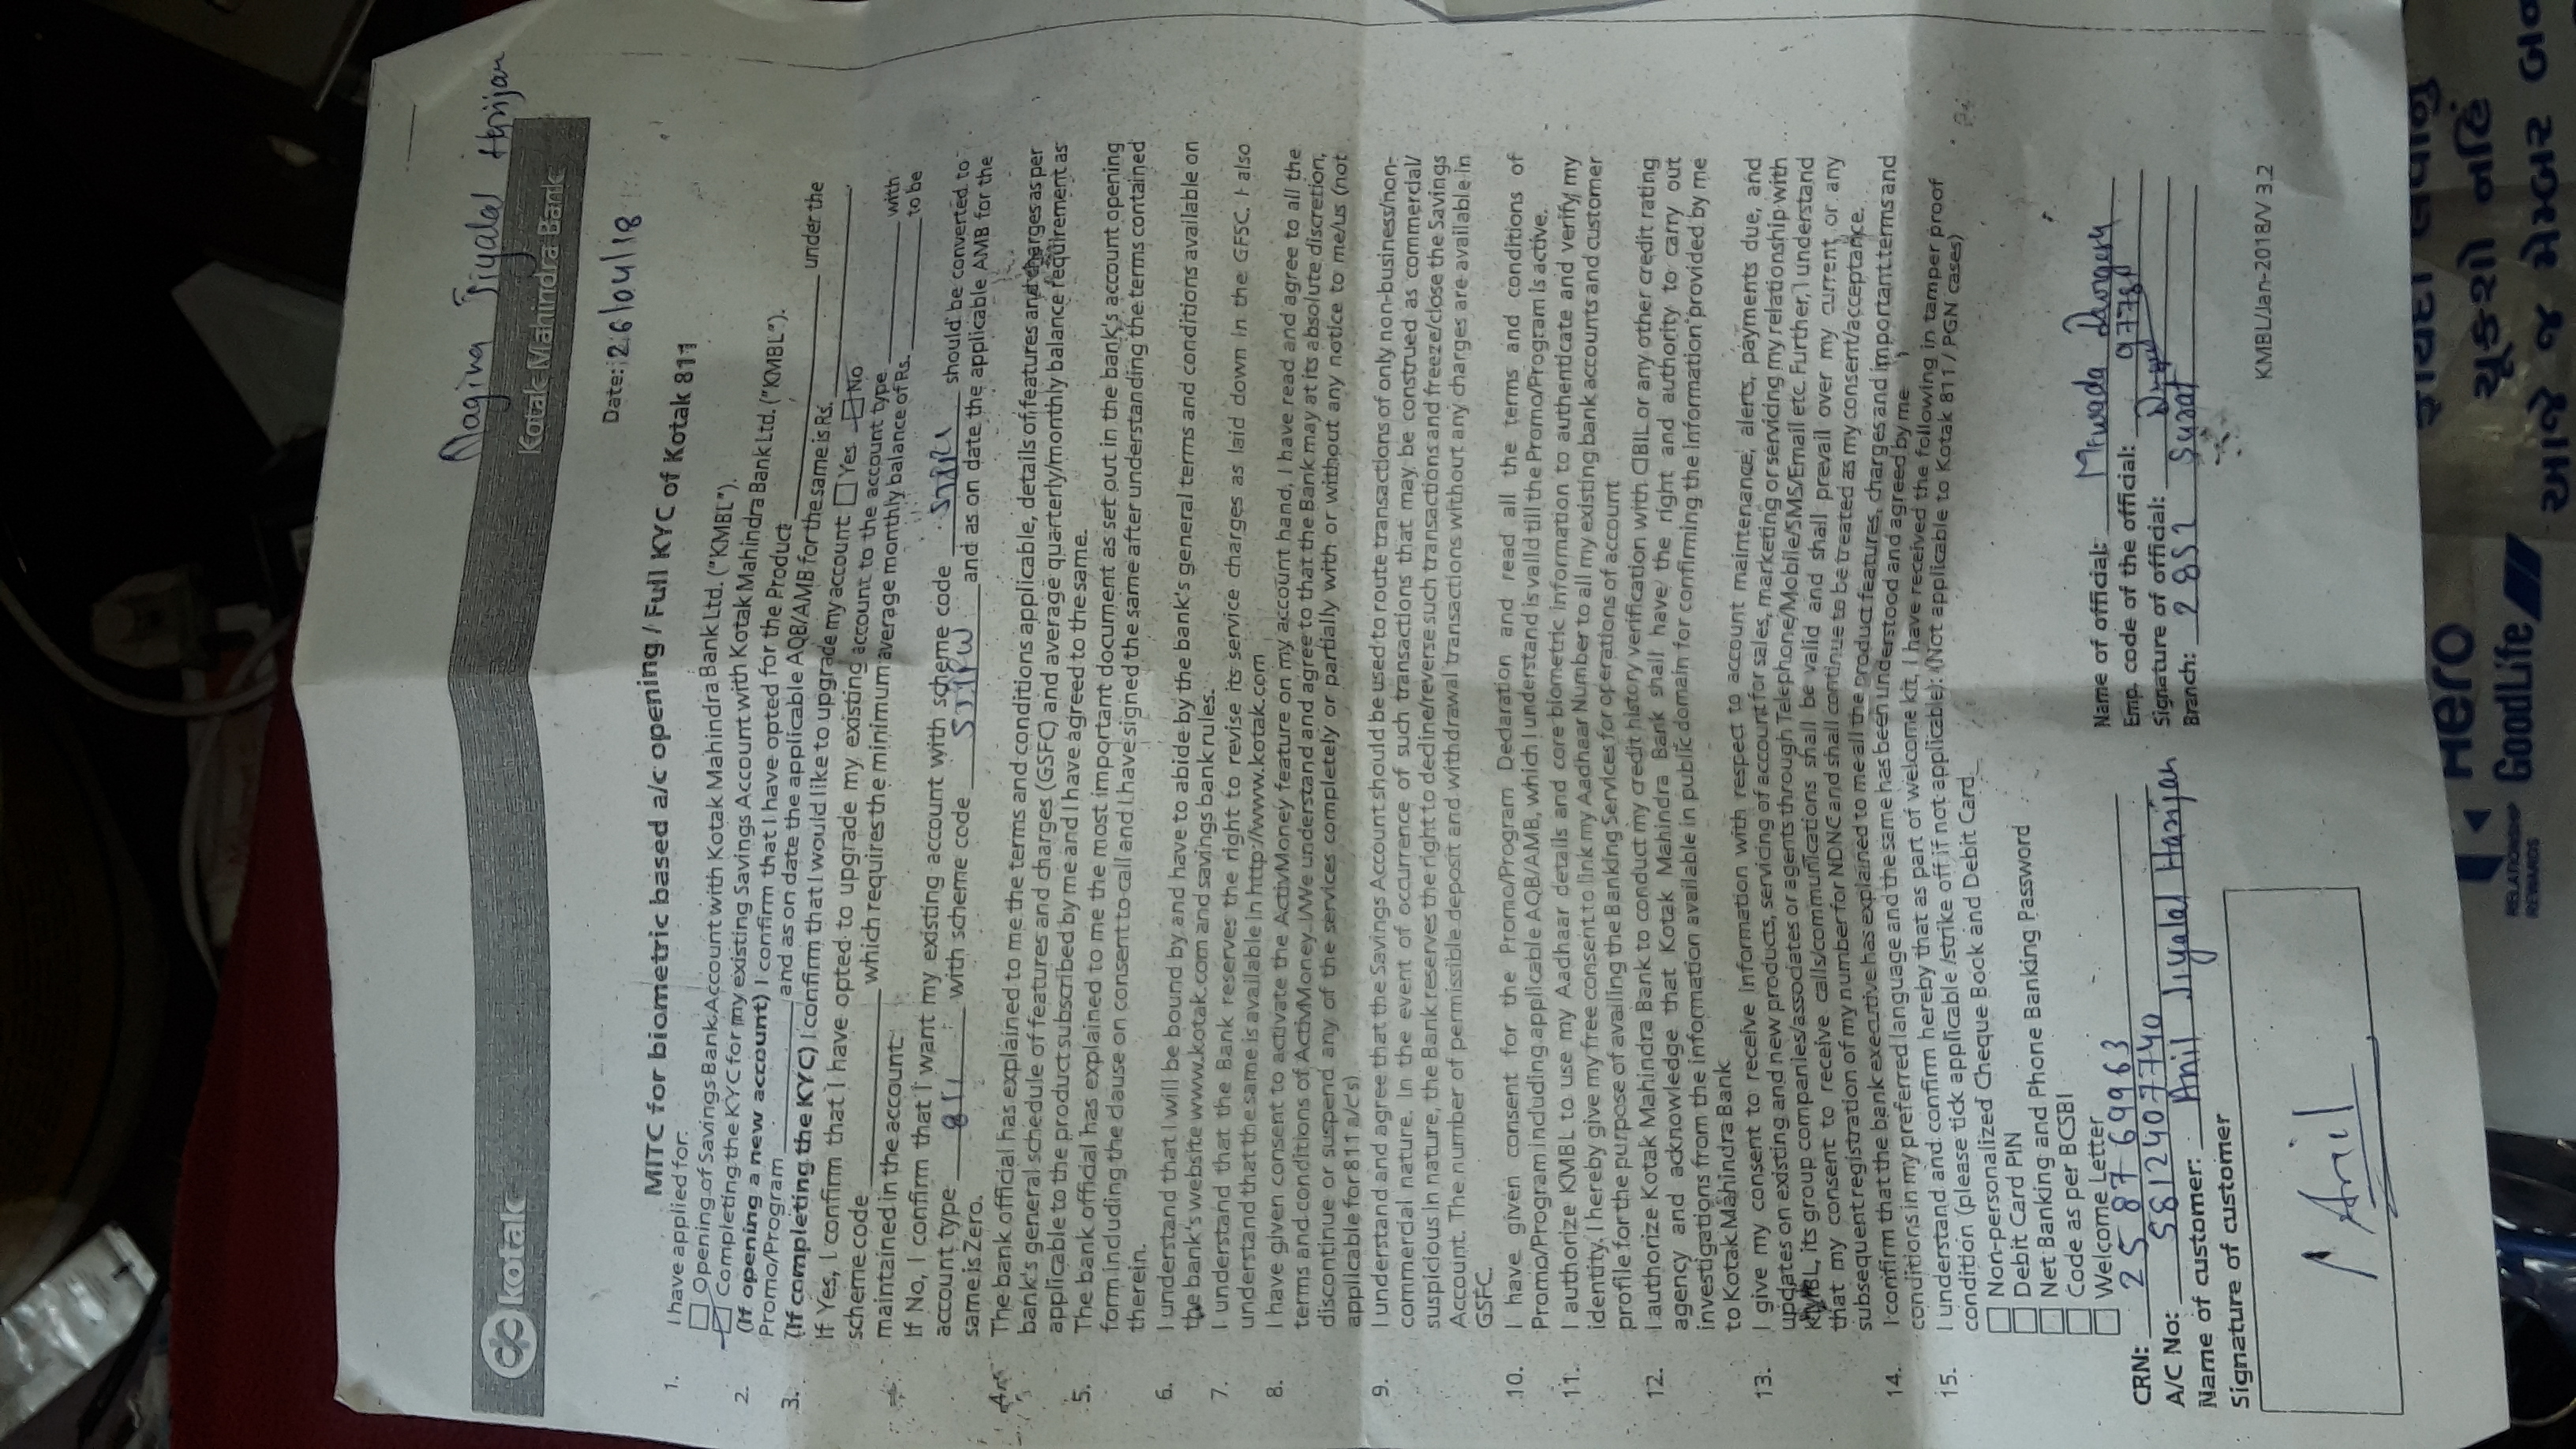 Nagina Jiyalal Harijan
kotak
Kotak Mahindra Bank
Date: 26/04/18
MITC for biometric based a/c opening / Full KYC of Kotak 811
1. I have applied for:
Opening of Savings Bank Account with Kotak Mahindra Bank Ltd. ("KMBL").
Completing the KYC for my existing Savings Account with Kotak Mahindra Bank Ltd. ("KMBL").
2. (If opening a new account) I confirm that I have opted for the Product under the
Promo/Program and as on date the applicable AQB/AMB for the same is Rs.
3. (If completing the KYC) I confirm that I would like to upgrade my account: Yes No
If Yes, I confirm that I have opted to upgrade my existing account to the account type with
scheme code which requires the minimum average monthly balance of Rs. to be
maintained in the account.
If No, I confirm that I want my existing account with scheme code should be converted to
account type 811 with scheme code and as on date the applicable AMB for the
same is Zero.
4. The bank official has explained to me the terms and conditions applicable, details of features and charges as per
bank's general schedule of features and charges (GSFC) and average quarterly/monthly balance requirement as
applicable to the product subscribed by me and I have agreed to the same.
5. The bank official has explained to me the most important document as set out in the bank's account opening
form including the clause on consent to call and I have signed the same after understanding the terms contained
therein.
6. I understand that I will be bound by and have to abide by the bank's general terms and conditions available on
the bank's website www.kotak.com and savings bank rules.
7. I understand that the Bank reserves the right to revise its service charges as laid down in the GFSC. I also
understand that the same is available in http://www.kotak.com
8. I have given consent to activate the ActivMoney feature on my account hand, I have read and agree to all the
terms and conditions of ActivMoney. I/We understand and agree to that the Bank may at its absolute discretion,
discontinue or suspend any of the services completely or partially with or without any notice to me/us (not
applicable for 811 a/c's)
9. I understand and agree that the Savings Account should be used to route transactions of only non-business/non-
commercial nature. In the event of occurrence of such transactions that may be construed as commercial/
suspicious in nature, the Bank reserves the right to decline/reverse such transactions and freeze/close the Savings
Account. The number of permissible deposit and withdrawal transactions without any charges are available in
GSFC.
10. I have given consent for the Promo/Program Declaration and read all the terms and conditions of
Promo/Program including applicable AQB/AMB, which I understand is valid till the Promo/Program is active.
11. I authorize KMBL to use my Aadhaar details and core biometric information to authenticate and verify my
identity. I hereby give my free consent to link my Aadhaar Number to all my existing bank accounts and customer
profile for the purpose of availing the Banking Services for operations of account
12. I authorize Kotak Mahindra Bank to conduct my credit history verification with CIBIL or any other credit rating
agency and acknowledge that Kotak Mahindra Bank shall have the right and authority to carry out
investigations from the information available in public domain for confirming the information provided by me
to Kotak Mahindra Bank
13. I give my consent to receive information with respect to account maintenance, alerts, payments due, and
updates on existing and new products, servicing of account for sales, marketing or servicing my relationship with
KMBL, its group companies/associates or agents through Telephone/Mobile/SMS/Email etc. Further, I understand
that my consent to receive calls/communications shall be valid and shall prevail over my current or any
subsequent registration of my number for NDNC and shall continue to be treated as my consent/acceptance.
14. I confirm that the bank executive has explained to me all the product features, charges and important terms and
conditions in my preferred language and the same has been understood and agreed by me
15. I understand and confirm hereby that as part of welcome kit, I have received the following in tamper proof
condition (please tick applicable /strike off if not applicable): (Not applicable to Kotak 811 / PGN cases)
Non-personalized Cheque Book and Debit Card
Debit Card PIN
Net Banking and Phone Banking Password
Code as per BCSBI
Welcome Letter
CRN: 258769963
A/C No: 5812407740
Name of customer: Anil Jiyalal Harijan
Signature of customer
Anil
Name of official: Mewada
Emp. code of the official:
Signature of official:
Branch: 2852 Surat
KMBL/Jan-2018/V 3.2
Hero
RELATIONSHIP
REWARDS
GoodLife
ફાયદા લેવાનું
ચૂકશો નહિં
આજે જ મેમ્બર